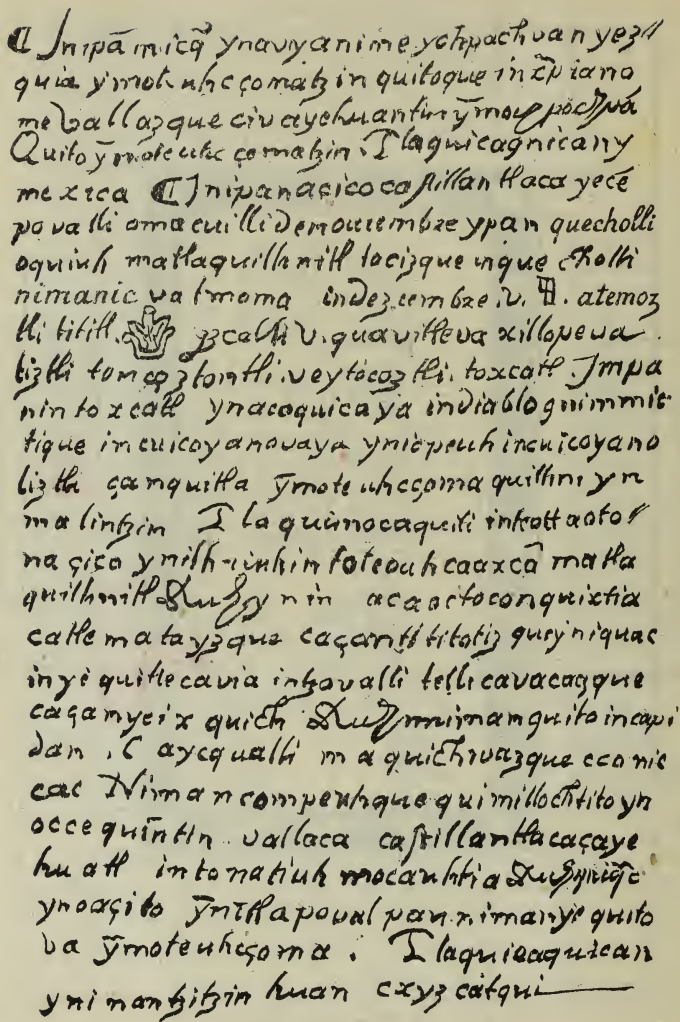 ¶ Jnipã micq̃ ynavyanime ychpachvan yez
quia ỹmot uhcçomatzin quitoque in xp̃iano
me vallazque civa yehuantin ỹmoch pochvã
Quito ỹmoteuhc çomatzin . Tlaquicaqnican y
mexica ¶ Jnipan acico castillan tlaca yecē
povalli omacuilli de nouiembre ypan quecholli
oquiuh matlaquilhuitl tocizque inque cholli
nimanic valmoma indeziembre .v. atemoz
tli titill. yzcalli v. quavitleva xillopeua
liztli toncoztontli . vey tocoztli . toxcatl . Jmpa
nin toxcatl ynacoquicaya indiablo quimmic
tique incuicoyanovaya ynicpeuh incuicoyano
liztli çanquitla ỹmoteuhcçoma quilhui yn
malintzin Tla quimocaquiti intottaoto
naçico ynilhuiuhin toteouh caaxcã matla
quilhuitl ynin acaoctoconquixtia
catlematayzque caçantititotiz que yniquac
inye quitlecavia intzovalli tellicavacazque
caçanyeix quich nimanquito incapi
dan . Caycqualli maquichivazque cconic
cac Niman compeuhque quimillochtito yn
occequintin vallaca castillantlaca çaye
huatl intonatiuh mocauhtia
ynoaçito ỹnitlapoval pan nimanye quito
va ỹmoteuhcçoma . Tlaquicaquican
yni nantzitzin huan cxyzcatqui